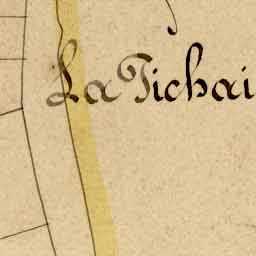 La Tichai